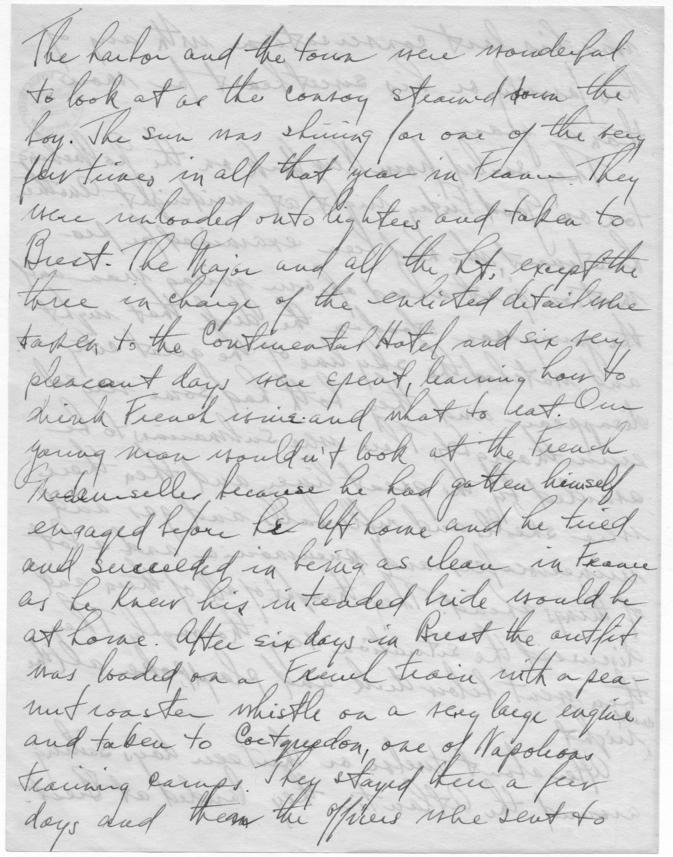 The harbor and the town were wonderful
to look at as the convoy steamed down the
bay. The sun was shining for one of the very
few times in all that year in France. They
were unloaded onto lighters and taken to
Brest. The Major and all the Lt, except the
three in charge of the enlisted detail were
taken to the Continental Hotel and six very
pleasant days were spent, learning how to
drink French wine and what to eat. Our
young man wouldn't look at the French
Mademselles because he had gotten himself
engaged before he left home and he tried
and succeeded in being as clean in France
as he knew his intended bride would be
at home. After six days in Brest the outfit
was loaded on a French train with a pea-
nut roaster whistle on a very large engine
and taken to Coetquedon, one of Napoleons
training camps. They stayed there a few
days and then the officers were sent to